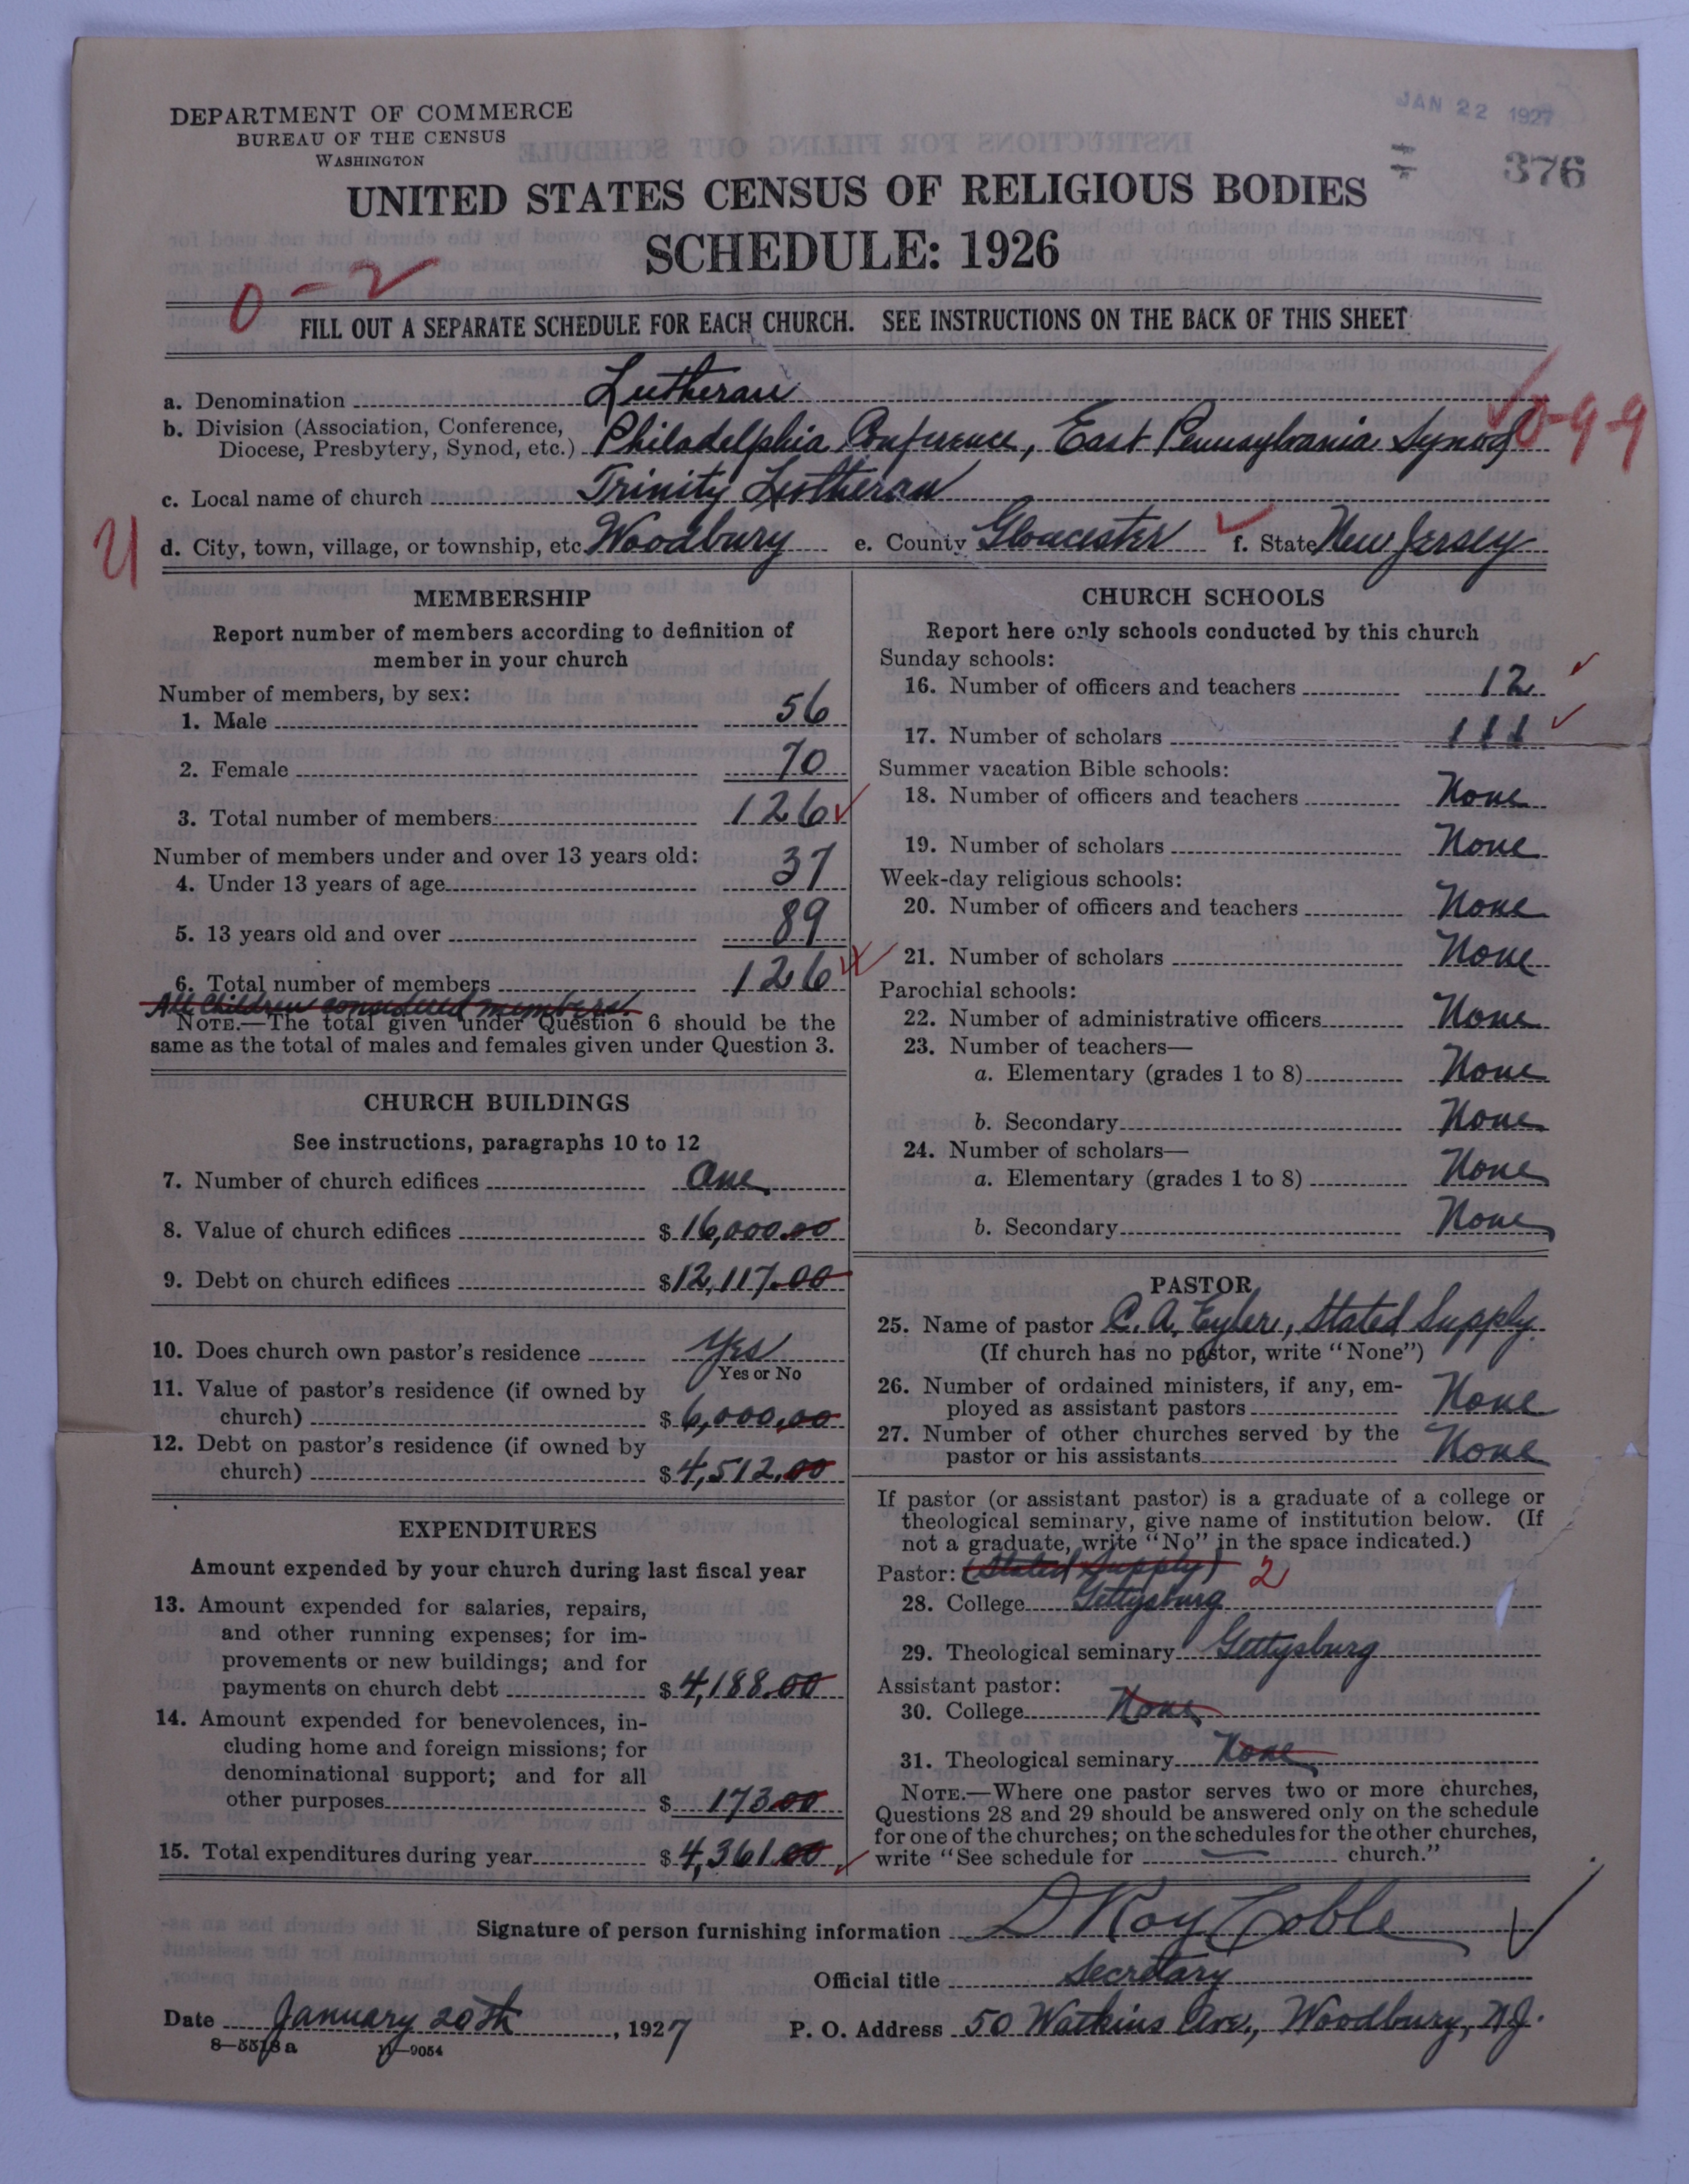 DEPARTMENT OF COMMERCE
BUREAU OF THE CENSUS
WASHINGTON
JAN 22 1927
376
UNITED STATES CENSUS OF RELIGIOUS BODIES
SCHEDULE: 1926
0-2
FILL OUT A SEPARATE SCHEDULE FOR EACH CHURCH. SEE INSTRUCTIONS ON THE BACK OF THIS SHEET
a. Denomination Lutheran
b. Division (Association, Conference,
Diocese, Presbytery, Synod, etc.) Philadelphia Conference, East Pennsylvania Synod
0-99
c. Local name of church Trinity Lutheran
U
d. City, town, village, or township, etc. Woodbury e. County Gloucester f. State New Jersey
MEMBERSHIP
Report number of members according to definition of
member in your church
Number of members, by sex:
1. Male 56
2. Female 70
3. Total number of members 126
Number of members under and over 13 years old:
4. Under 13 years of age 37
5. 13 years old and over 89
6. Total number of members 126
All Children considered members.
NOTE.—The total given under Question 6 should be the
same as the total of males and females given under Question 3.
CHURCH BUILDINGS
See instructions, paragraphs 10 to 12
7. Number of church edifices One
8. Value of church edifices $16,000.00
9. Debt on church edifices $12,117.00
10. Does church own pastor's residence Yes
Yes or No
11. Value of pastor's residence (if owned by
church) $6,000.00
12. Debt on pastor's residence (if owned by
church) $4,512.00
EXPENDITURES
Amount expended by your church during last fiscal year
13. Amount expended for salaries, repairs,
and other running expenses; for im-
provements or new buildings; and for
payments on church debt $4,188.00
14. Amount expended for benevolences, in-
cluding home and foreign missions; for
denominational support; and for all
other purposes $173.00
15. Total expenditures during year $4,361.00
CHURCH SCHOOLS
Report here only schools conducted by this church
Sunday schools:
16. Number of officers and teachers 12
17. Number of scholars 111
Summer vacation Bible schools:
18. Number of officers and teachers None
19. Number of scholars None
Week-day religious schools:
20. Number of officers and teachers None
21. Number of scholars None
Parochial schools:
22. Number of administrative officers None
23. Number of teachers—
a. Elementary (grades 1 to 8) None
b. Secondary None
24. Number of scholars—
a. Elementary (grades 1 to 8) None
b. Secondary None
PASTOR
25. Name of pastor C. A. Eyler, Stated Supply
(If church has no pastor, write "None")
26. Number of ordained ministers, if any, em-
ployed as assistant pastors None
27. Number of other churches served by the
pastor or his assistants None
If pastor (or assistant pastor) is a graduate of a college or
theological seminary, give name of institution below. (If
not a graduate, write "No" in the space indicated.)
Pastor: (Stated Supply) 2
28. College Gettysburg
29. Theological seminary Gettysburg
Assistant pastor:
30. College None
31. Theological seminary None
NOTE.—Where one pastor serves two or more churches,
Questions 28 and 29 should be answered only on the schedule
for one of the churches; on the schedules for the other churches,
write "See schedule for church."
Signature of person furnishing information D Roy Coble
Official title Secretary
Date January 20th, 1927 P. O. Address 50 Watkins Ave., Woodbury, N.J.
8—5518a 11—9054